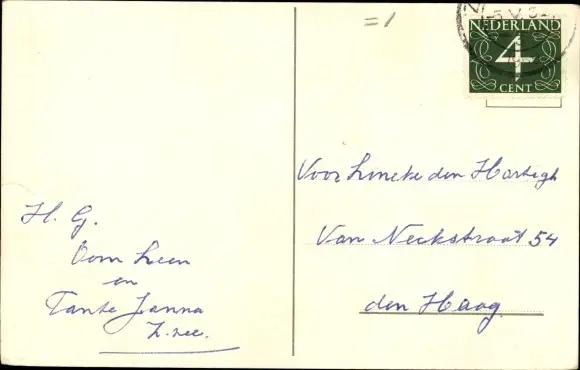 =1
NEDERLAND
4
CENT
Voor Lineke den Hartogh
Van Neckstraat 54
den Haag
H. G.
Oom Leen
en
Tante Janna
Z. zee.